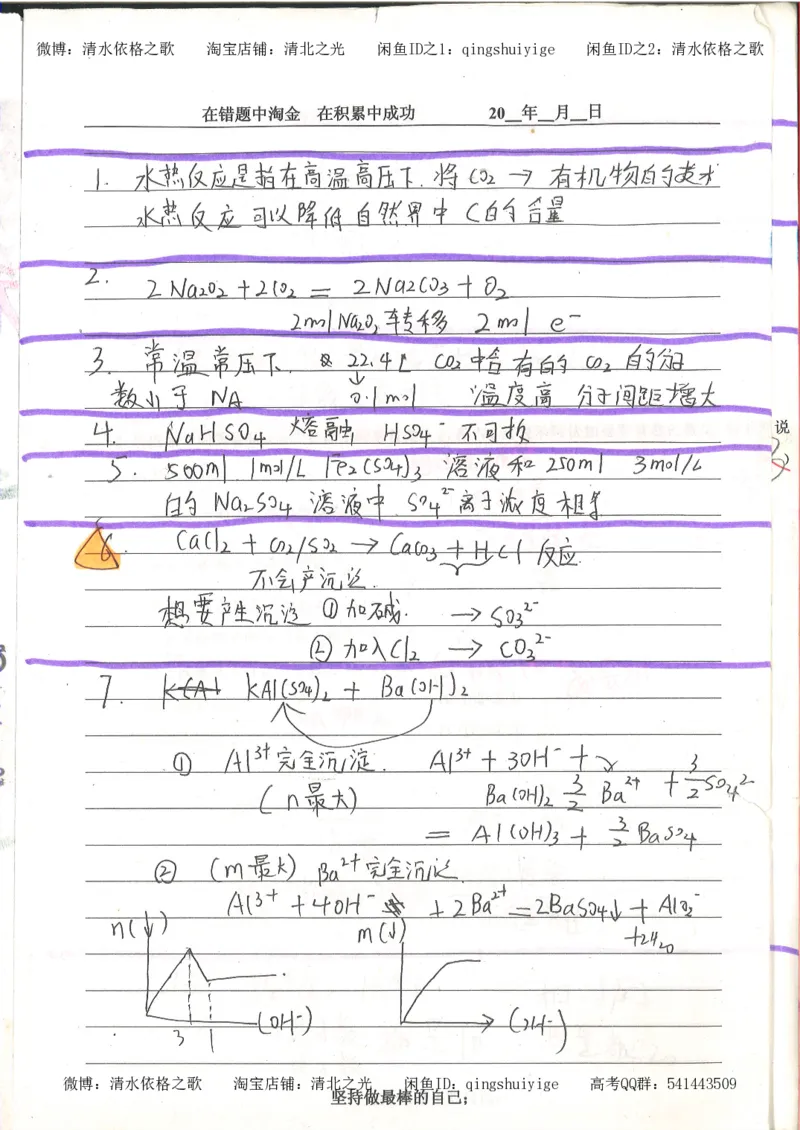 微博：清水依格之歌 淘宝店铺：清北之光 闲鱼ID之1：qingshuiyige 闲鱼ID之2：清水依格之歌
在错题中淘金 在积累中成功 20__年__月__日
1. 水热反应是指在高温高压下.将CO2 → 有机物的技术
水热反应可以降低自然界中C的含量
2.
2Na2O2 + 2CO2 = 2Na2CO3 + O2
2mol Na2O2 转移 2mol e⁻
3. 常温常压下. 22.4L CO2中含有的CO2的分子
数小于NA 0.1mol 温度高 分子间距增大
说
4. NaHSO4 熔融 HSO4⁻ 不可拆
5. 500ml 1mol/L Fe2(SO4)3 溶液和 250ml 3mol/L
的 Na2SO4 溶液中 SO4²⁻离子浓度相等
6. CaCl2 + CO2/SO2 → CaCO3 + HCl 反应
不会产沉淀.
想要产生沉淀 ①加碱. → SO3²⁻
②加入Cl2 → CO3²⁻
7. KAl(SO4)2 + Ba(OH)2
① Al³⁺完全沉淀. Al³⁺ + 3OH⁻ +
(n最大) Ba(OH)2 3/2 Ba²⁺ + 3/2 SO4²⁻
= Al(OH)3 + 3/2 BaSO4
② (m最大) Ba²⁺完全沉淀.
Al³⁺ + 4OH⁻ + 2Ba²⁺ = 2BaSO4↓ + AlO2⁻
+2H2O
n(↓) m(↓)
3 1 (OH⁻) (OH⁻)
微博：清水依格之歌 淘宝店铺：清北之光 闲鱼ID：qingshuiyige 高考QQ群：541443509
坚持做最棒的自己；